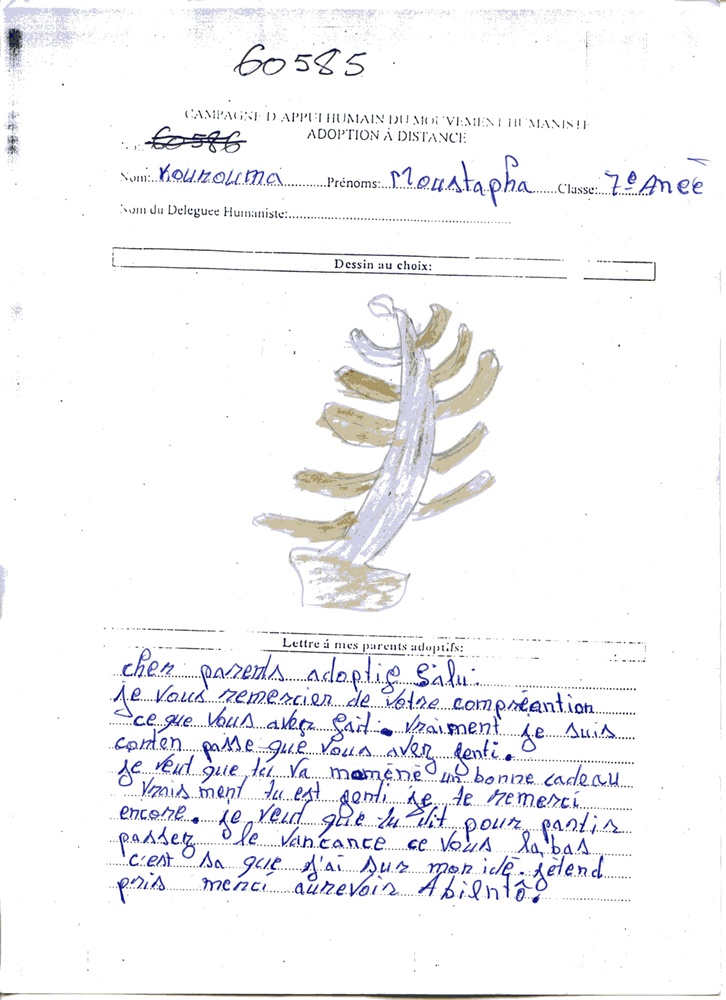 60585
CAMPAGNE D'APPUI HUMAIN DU MOUVEMENT HUMANISTE
ADOPTION À DISTANCE
60586
Nom: Kourouma Prénoms: Moustapha Classe: 7e Aneè
Nom du Deleguee Humaniste:
Dessin au choix:
Lettre á mes parents adoptifs:
cher parents adoptif Salu.
je vous remercier de votre compréantion
ce que vous avez fait. vraiment je suis
conten passe que vous avez genti.
je veut que tu va momènè un bonne cadeau
vrais ment tu est genti je te remerci
encore. je veut que tu dit pour partir
passer le vancance ce vous la bas
c'est sa que j'ai sur mon idé. jetend
pris merci aurevoir Abientô.